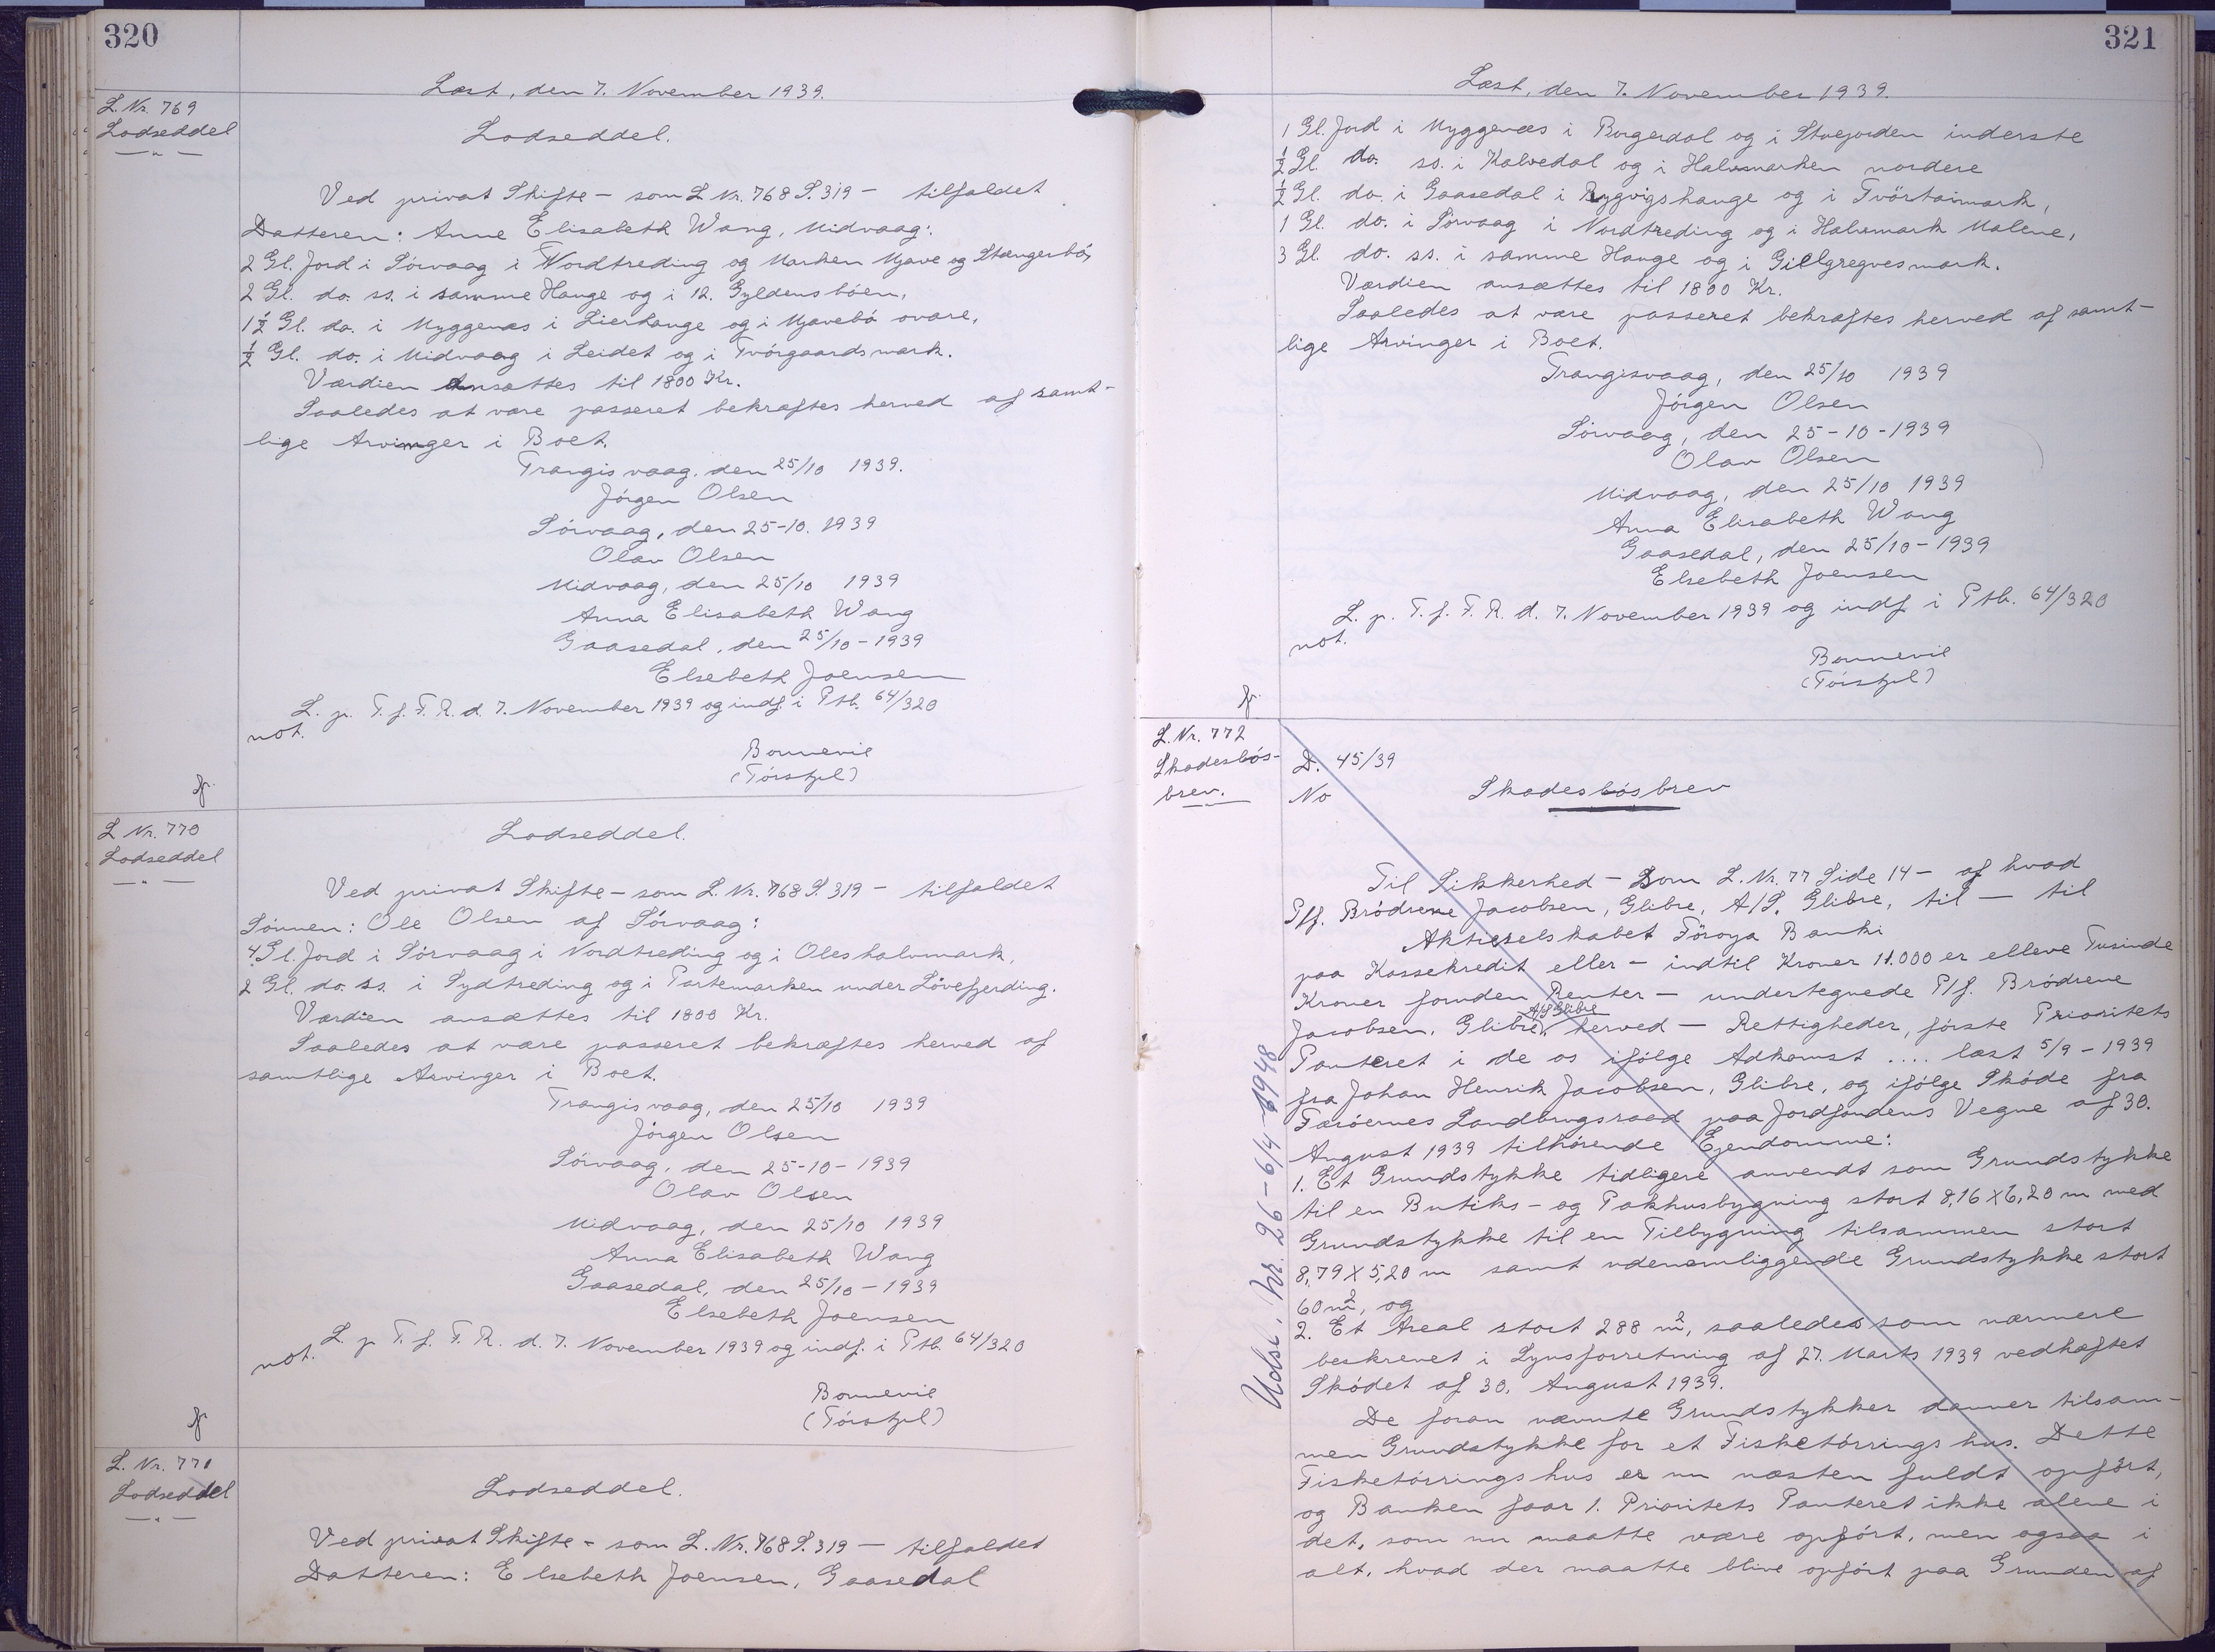 320
Læst, den 7. November 1939.
L. Nr. 769
Lodseddel
Lodseddel.
Ved privat Skifte - som L Nr. 768 S. 319 - tilfaldet
Datteren: Anne Elisabeth Wang, Midvaag:
2 Gl. Jord i Sörvaag i Nordtreding og Marken Mjave og Stangerbö,
2 Gl. do. ss. i samme Hauge og i 12. Gyldensböen,
1½ Gl. do. i Myggenæs i Lierhange og i Mjavebö ovare,
½ Gl. do. i Midvaag i Leidet og i Tvörgaardsmark.
Værdien ansættes til 1800 Kr.
Saaledes at være passeret bekræftes herved af samt-
lige Arvinger i Boet.
Trangisvaag, den 25/10 1939.
Jörgen Olsen
Sörvaag, den 25-10. 1939
Olav Olsen
Midvaag, den 25/10 1939
Anna Elisabeth Wang
Gaasedal, den 25/10 - 1939
Elsebeth Joensen
L. p. T. f. F. R. d. 7. November 1939 og indf. i Ptb. 64/320
not.
Bonnevie
(Tórstjel)
L Nr. 770
Lodseddel
Lodseddel.
Ved privat Skifte - som L. Nr. 768 S. 319 - tilfaldet
Sönnen: Ole Olsen af Sörvaag:
4 Gl. Jord i Sörvaag i Nordtreding og i Oleshalvmark,
2 Gl. do. ss. i Sydtreding og i Partemarken under Lövefjerding.
Værdien ansættes til 1800 Kr.
Saaledes at være passeret bekræftes herved af
samtlige Arvinger i Boet.
Trangisvaag, den 25/10 1939
Jörgen Olsen
Sörvaag, den 25-10-1939
Olav Olsen
Midvaag, den 25/10 1939
Anna Elisabeth Wang
Gaasedal, den 25/10 - 1939
Elsebeth Joensen
L. p T. f. F. R. d. 7. November 1939 og indf. i Ptb. 64/320
not.
Bonnevie
(Tórstjel)
L. Nr. 771
Lodseddel
Lodseddel.
Ved privat Skifte - som L. Nr. 768 S. 319 - tilfaldet
Datteren: Elsebeth Joensen, Gaasedal
321
Læst, den 7. November 1939.
1 Gl. Jord i Myggenæs i Borgerdal og i Stuejorden inderste
½ Gl. do. ss. i Kalvedal og i Halvmarken nordere
½ Gl. do. i Gaasedal i Rygvigshauge og i Tvörtaimark,
1 Gl. do. i Sörvaag i Nordtreding og i Halvmark Malene,
3 Gl. do. ss. i samme Hauge og i Gillgregvesmark.
Værdien ansættes til 1800 Kr.
Saaledes at være passeret bekræftes herved af samt-
lige Arvinger i Boet.
Trangisvaag, den 25/10 1939
Jörgen Olsen
Sörvaag, den 25-10-1939
Olav Olsen
Midvaag, den 25/10 1939
Anna Elisabeth Wang
Gaasedal, den 25/10 - 1939
Elsebeth Joensen
L. p. T. f. F. R. d. 7. November 1939 og indf. i Ptb. 64/320
not.
Bonnevie
(Tórstjel)
L. Nr. 772
Skadeslös-
brev.
D. 45/39
No
Skadeslösbrev
Til Sikkerhed - som L. Nr. 77 Side 14 - af hvad
P/f. Brödrene Jacobsen, Glibre, A/S. Glibre, til - til
Aktieselskabet Föroya Banki
paa Kassekredit eller - indtil Kroner 11.000 er elleve Tusinde
Kroner foruden Renter - undertegnede P/f. Brödrene
Jacobsen, Glibre, A/S Glibre herved - Rettigheder, förste Prioritets
Panteret i de os ifölge Adkomst .... læst 5/9 - 1939
fra Johan Henrik Jacobsen, Glibre, og ifölge Sköde fra
Færöernes Landbrugsraad paa Jordfondens Vegne af 30.
August 1939 tilhörende Ejendomme:
1. Et Grundstykke tidligere anvendt som Grundstykke
til en Butiks- og Pakhusbygning stort 8,16 X 6,20 m med
Grundstykke til en Tilbygning tilsammen stort
8,79 X 5,20 m samt udenomliggende Grundstykke stort
60 m², og
2. Et Areal stort 288 m², saaledes som nærmere
beskrevet i Synsforretning af 27. Marts 1939 vedhæftet
Sködet af 30. August 1939.
De foran nævnte Grundstykker danner tilsam-
men Grundstykke for et Fisketörringshus. Dette
Fisketörringshus er nu næsten fuldt opfört,
og Banken faar 1. Prioritets Panteret ikke alene i
det, som nu maatte være opfört, men ogsaa i
alt, hvad der maatte blive opfört paa Grunden af
Udsl. Nr. 26 - 6/4 1948